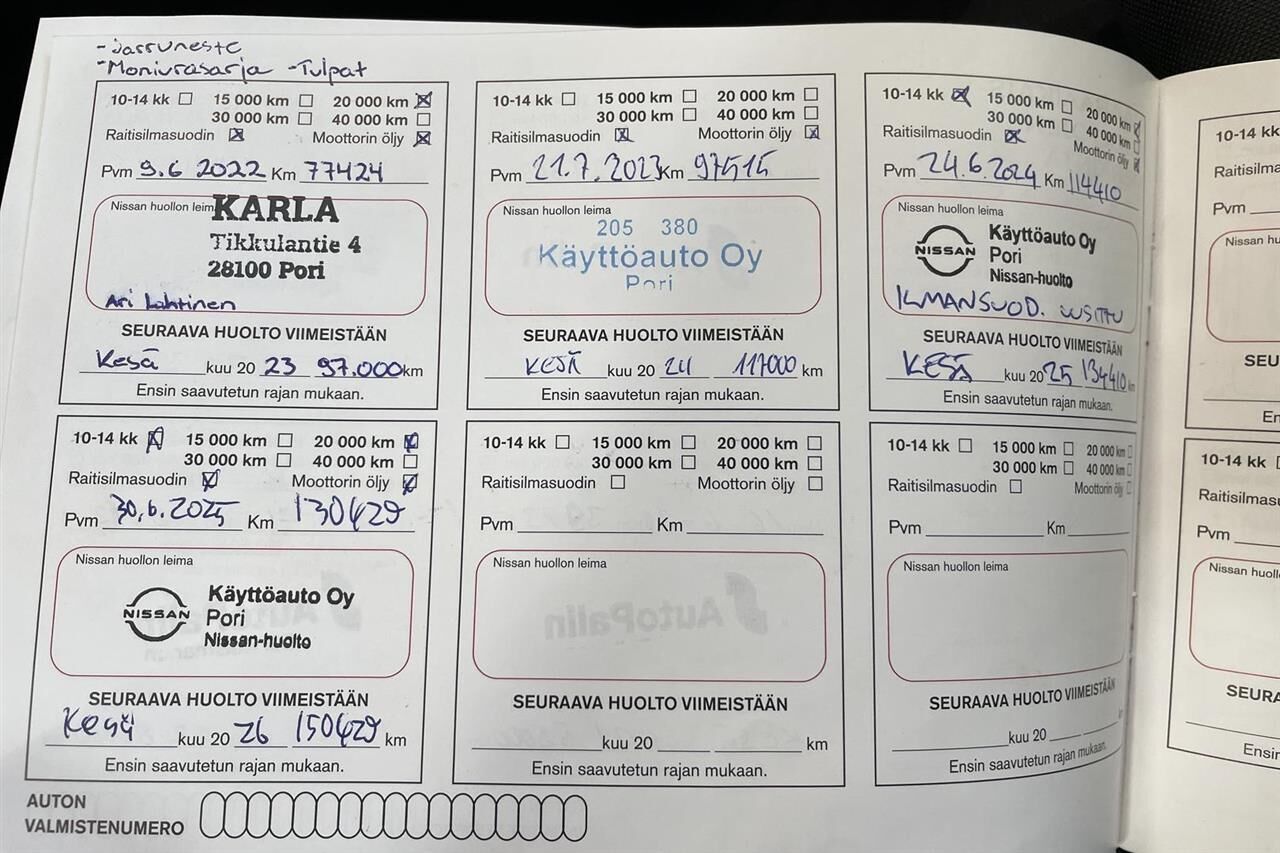 -Jarruneste
-Moniurasarja -Tulpat
10-14 kk 15 000 km 20 000 km
30 000 km 40 000 km
Raitisilmasuodin Moottorin öljy
Pvm 9.6 2022 Km 77424
Nissan huollon leima
KARLA
Tikkulantie 4
28100 Pori
Ari Lahtinen
SEURAAVA HUOLTO VIIMEISTÄÄN
Kesä kuu 20 23 97.000 km
Ensin saavutetun rajan mukaan.
10-14 kk 15 000 km 20 000 km
30 000 km 40 000 km
Raitisilmasuodin Moottorin öljy
Pvm 21.7.2023 Km 97515
Nissan huollon leima
205 380
Käyttöauto Oy
Pori
SEURAAVA HUOLTO VIIMEISTÄÄN
KESÄ kuu 20 24 117000 km
Ensin saavutetun rajan mukaan.
10-14 kk 15 000 km 20 000 km
30 000 km 40 000 km
Raitisilmasuodin Moottorin öljy
Pvm 24.6.2024 Km 114410
Nissan huollon leima
NISSAN
Käyttöauto Oy
Pori
Nissan-huolto
ILMANSUOD. UUSITTU
SEURAAVA HUOLTO VIIMEISTÄÄN
KESÄ kuu 20 25 134410 km
Ensin saavutetun rajan mukaan.
10-14 kk 15 000 km 20 000 km
30 000 km 40 000 km
Raitisilmasuodin Moottorin öljy
Pvm 30.6.2025 Km 130429
Nissan huollon leima
NISSAN
Käyttöauto Oy
Pori
Nissan-huolto
SEURAAVA HUOLTO VIIMEISTÄÄN
Kesä kuu 20 26 150429 km
Ensin saavutetun rajan mukaan.
10-14 kk 15 000 km 20 000 km
30 000 km 40 000 km
Raitisilmasuodin Moottorin öljy
Pvm Km
Nissan huollon leima
AutoPalin
SEURAAVA HUOLTO VIIMEISTÄÄN
kuu 20 km
Ensin saavutetun rajan mukaan.
10-14 kk 15 000 km 20 000 km
30 000 km 40 000 km
Raitisilmasuodin Moottorin öljy
Pvm Km
Nissan huollon leima
SEURAAVA HUOLTO VIIMEISTÄÄN
kuu 20 km
Ensin saavutetun rajan mukaan.
AUTON
VALMISTENUMERO
10-14 kk
Raitisilma
Pvm
Nissan hu
SEU
En
10-14 kk
Raitisilmasu
Pvm
Nissan huoll
SEURA
Ensin